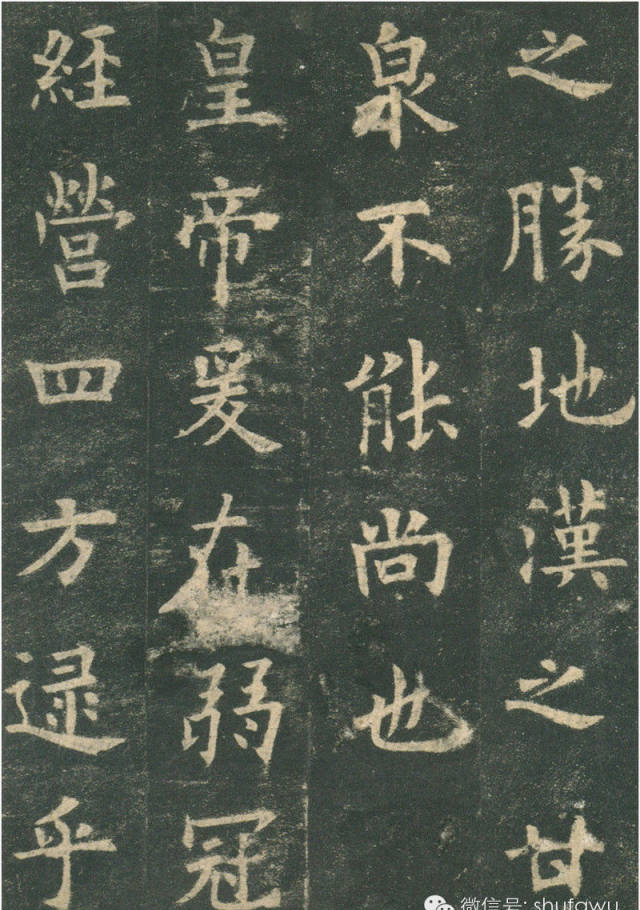 之勝地漢之甘
泉不能尚也
皇帝爰在弱冠
經營四方逯乎
微信号: shufawu